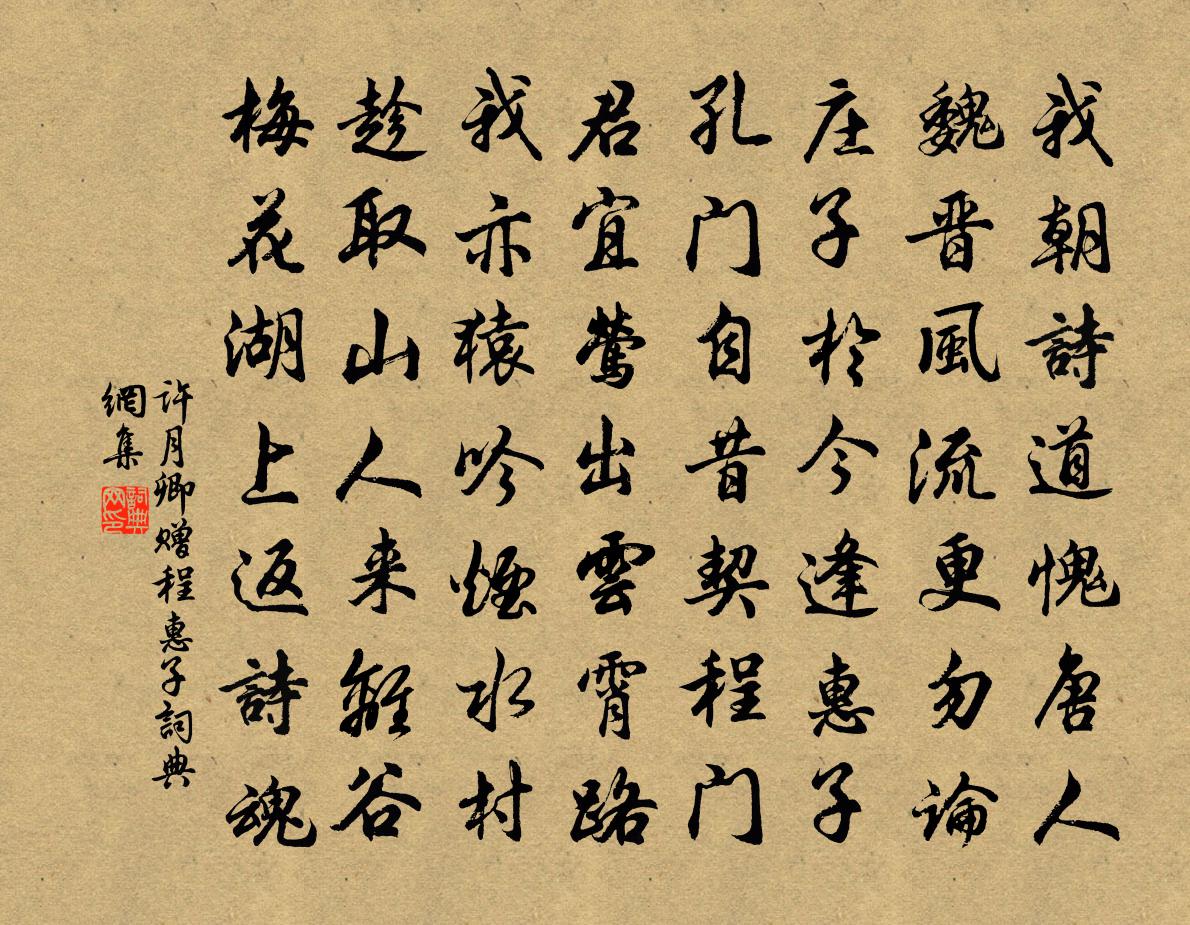 我朝詩道愧唐人
魏晋風流更勿論
庄子於今逢惠子
孔门自昔契程门
君宜莺出雲霄路
我亦猿吟煙水村
趁取山人来離谷
梅花湖上返詩魂
许月卿赠程惠子詞典
網集
詞典
网印